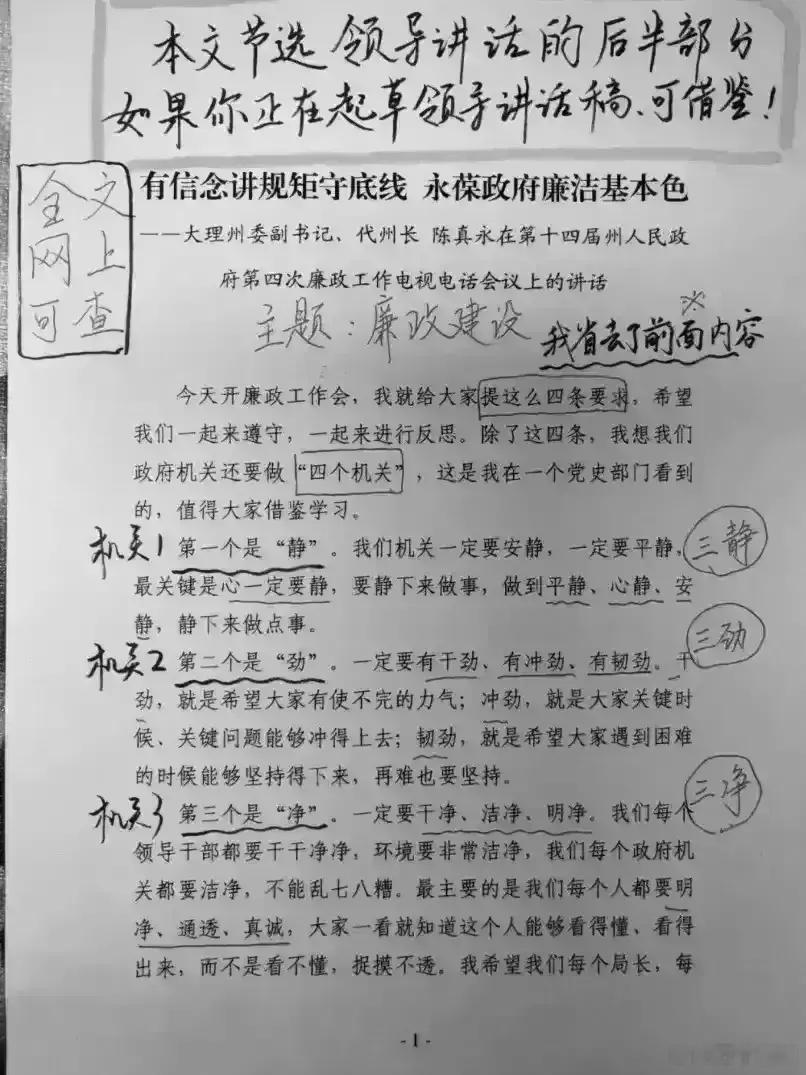 本文节选领导讲话的后半部分
如果你正在起草领导讲话稿、可借鉴！
全文
网上
可查
有信念讲规矩守底线 永葆政府廉洁基本色
——大理州委副书记、代州长 陈真永在第十四届州人民政
府第四次廉政工作电视电话会议上的讲话
主题：廉政建设
※
我省去了前面内容
今天开廉政工作会，我就给大家提这么四条要求，希望
我们一起来遵守，一起来进行反思。除了这四条，我想我们
政府机关还要做“四个机关”，这是我在一个党史部门看到
的，值得大家借鉴学习。
机关1 第一个是“静”。我们机关一定要安静，一定要平静， 三静
最关键是心一定要静，要静下来做事，做到平静、心静、安
静，静下来做点事。
机关2 第二个是“劲”。一定要有干劲、有冲劲、有韧劲。干 三劲
劲，就是希望大家有使不完的力气；冲劲，就是大家关键时
候、关键问题能够冲得上去；韧劲，就是希望大家遇到困难
的时候能够坚持得下来，再难也要坚持。
机关3 第三个是“净”。一定要干净、洁净、明净。我们每个 三净
领导干部都要干干净净，环境要非常洁净，我们每个政府机
关都要洁净，不能乱七八糟。最主要的是我们每个人都要明
净、通透、真诚，大家一看就知道这个人能够看得懂、看得
出来，而不是看不懂，捉摸不透。我希望我们每个局长，每
- 1 -